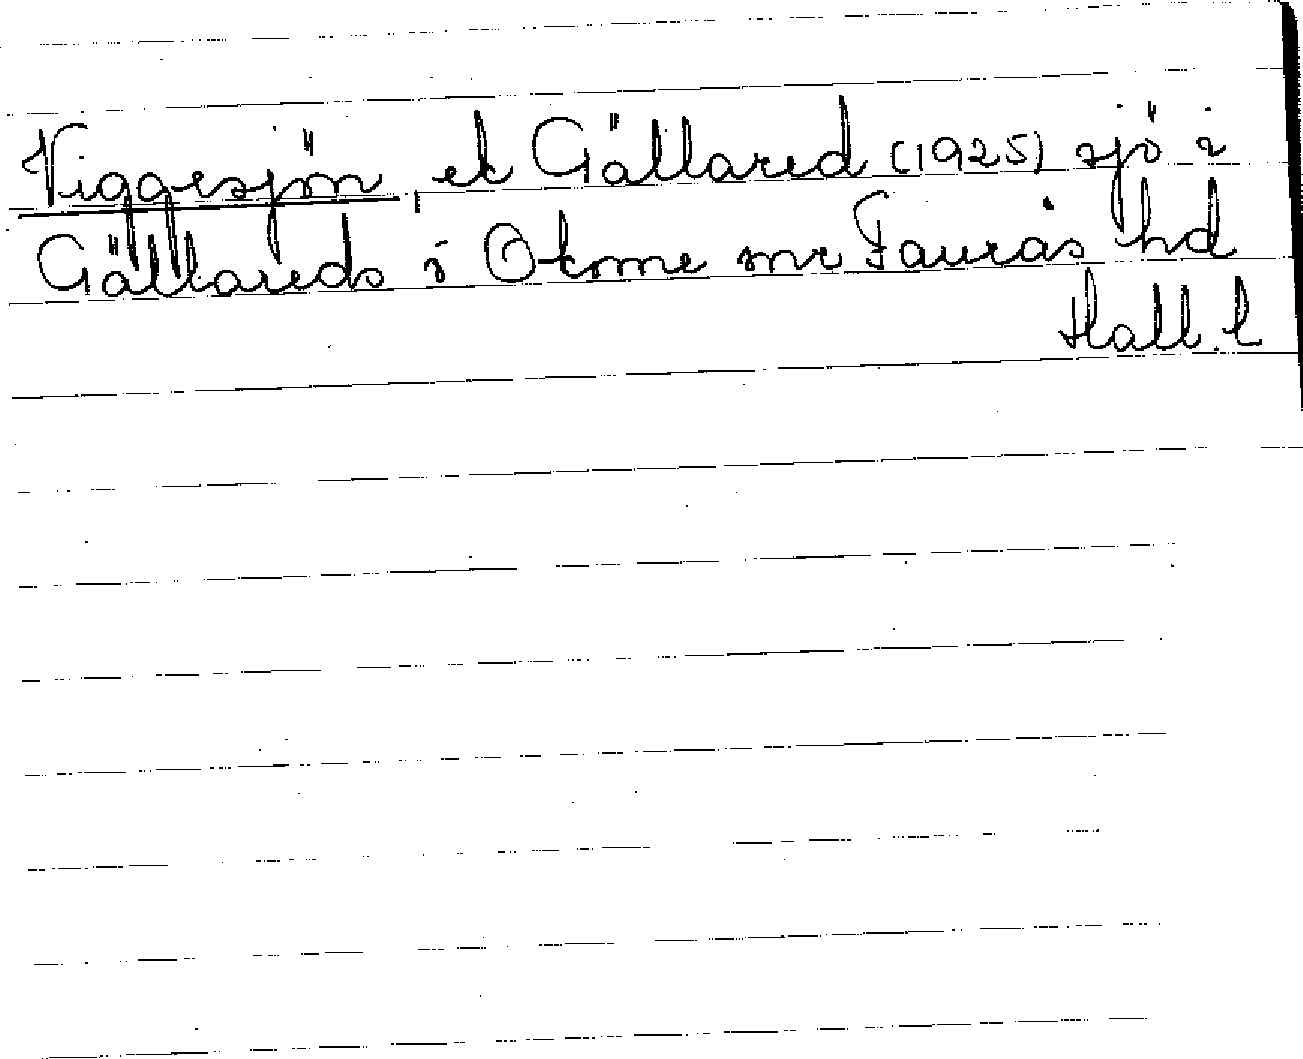 Viggesjön, ek Gällared (1925) sjö i
Gällareds o Okome snr Faurås hd
Hall. l